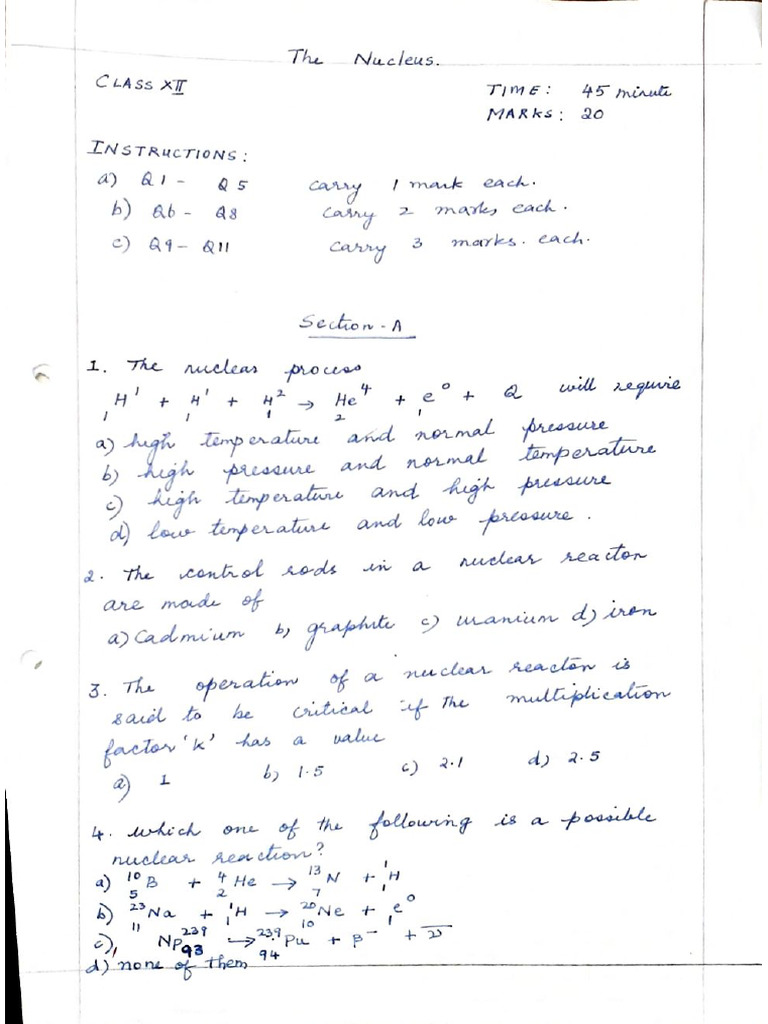 The Nucleus.
CLASS XII
TIME: 45 minute
MARKS: 20
INSTRUCTIONS:
a) Q1 - Q5 carry 1 mark each.
b) Q6 - Q8 carry 2 marks each.
c) Q9 - Q11 carry 3 marks. each.
Section - A
1. The nuclear process
₁H¹ + ₁H¹ + ₁H² → ₂He⁴ + ₁e⁰ + Q will require
a) high temperature and normal pressure
b) high pressure and normal temperature
c) high temperature and high pressure
d) low temperature and low pressure.
2. The control rods in a nuclear reactor
are made of
a) Cadmium b) graphite c) uranium d) iron
3. The operation of a nuclear reactor is
said to be critical if the multiplication
factor 'k' has a value
a) 1 b) 1.5 c) 2.1 d) 2.5
4. which one of the following is a possible
nuclear reaction?
a) ¹⁰₅B + ⁴₂He → ¹³₇N + ¹₁H
b) ²³₁₁Na + ¹₁H → ²⁰₁₀Ne + ₁e⁰
c) Np²³⁹₉₃ → ²³⁹₉₄Pu + β⁻ + ν̅
d) none of them